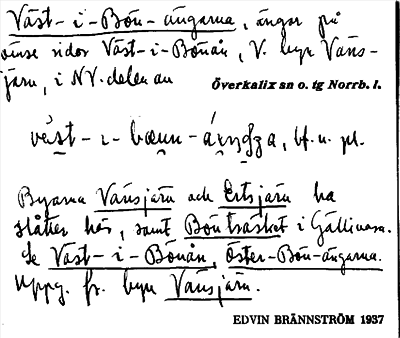 Väst-i-Bön-ängarna, ängar på
ömse sidor Väst-i-Bönån, V. byn Väns-
järv, i NV-delen av Överkalix sn o. tg Norrb. l.
bf. n. pl.
Byarna Vänsjärv och Ertsjärv ha
slåtter här, samt Bönträsket i Gällivare.
Se Väst-i-Bönån, Öster-Bön-ängarna.
Uppg. fr. byn Vänsjärv.
EDVIN BRÄNNSTRÖM 1937